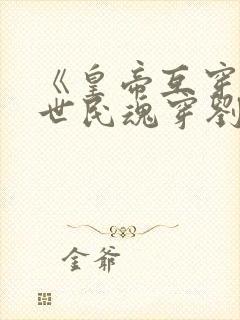 《皇帝互穿
世民魂穿劉
金爺